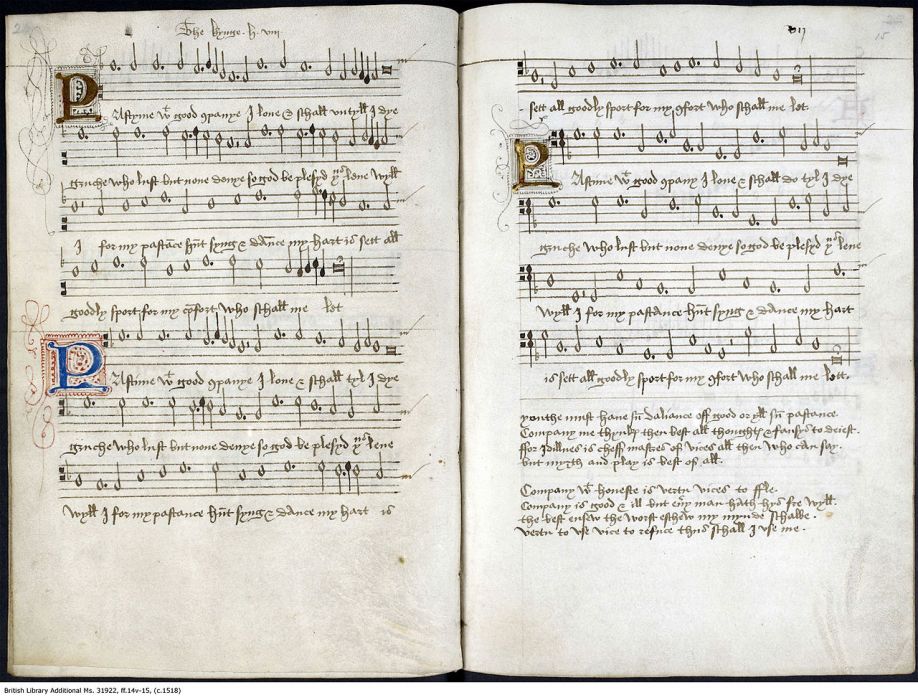 The kynge .h. viij
PAstyme wt good 9panye I love & schall vntyll I dye
gruche who lust but none denye so god be plesyd yus leve wyll
I for my pastance hūt syng & dāce my hart is sett all
goodly sport for my cōfort who schall me let
PAstime wt good 9panye I love & schall tyl I dye
gruche who lust but none denye so god be plesyd yus leve
wyll I for my pastance hūt syng & dance my hart is
15
sett all goodly sport for my 9fort who schall me let
PAstime wt good 9pany I love & schall do tyl I dye
gruche who lust but none denye so god be plesyd yus leve
wyll I for my pastance hūt syng & dance my hart
is sett all goodly sport for my 9fort who schall me lett.
youthe must have sū daliance off good or yll sū pastance.
Company me thynkes then best all thoughts & fansys to deiest.
ffor Idillnes is cheff mastres of vices all then who can say.
but myrth and play is best of all.
Company wt honeste is vertu vices to ffle.
Company is good & ill but eūy man hath hys fre wyll.
the best ensew the worst eschew my mynde schalbe.
vertu to vse vice to refuce thus schall I vse me.
British Library Additional Ms. 31922, ff.14v-15, (c.1518)